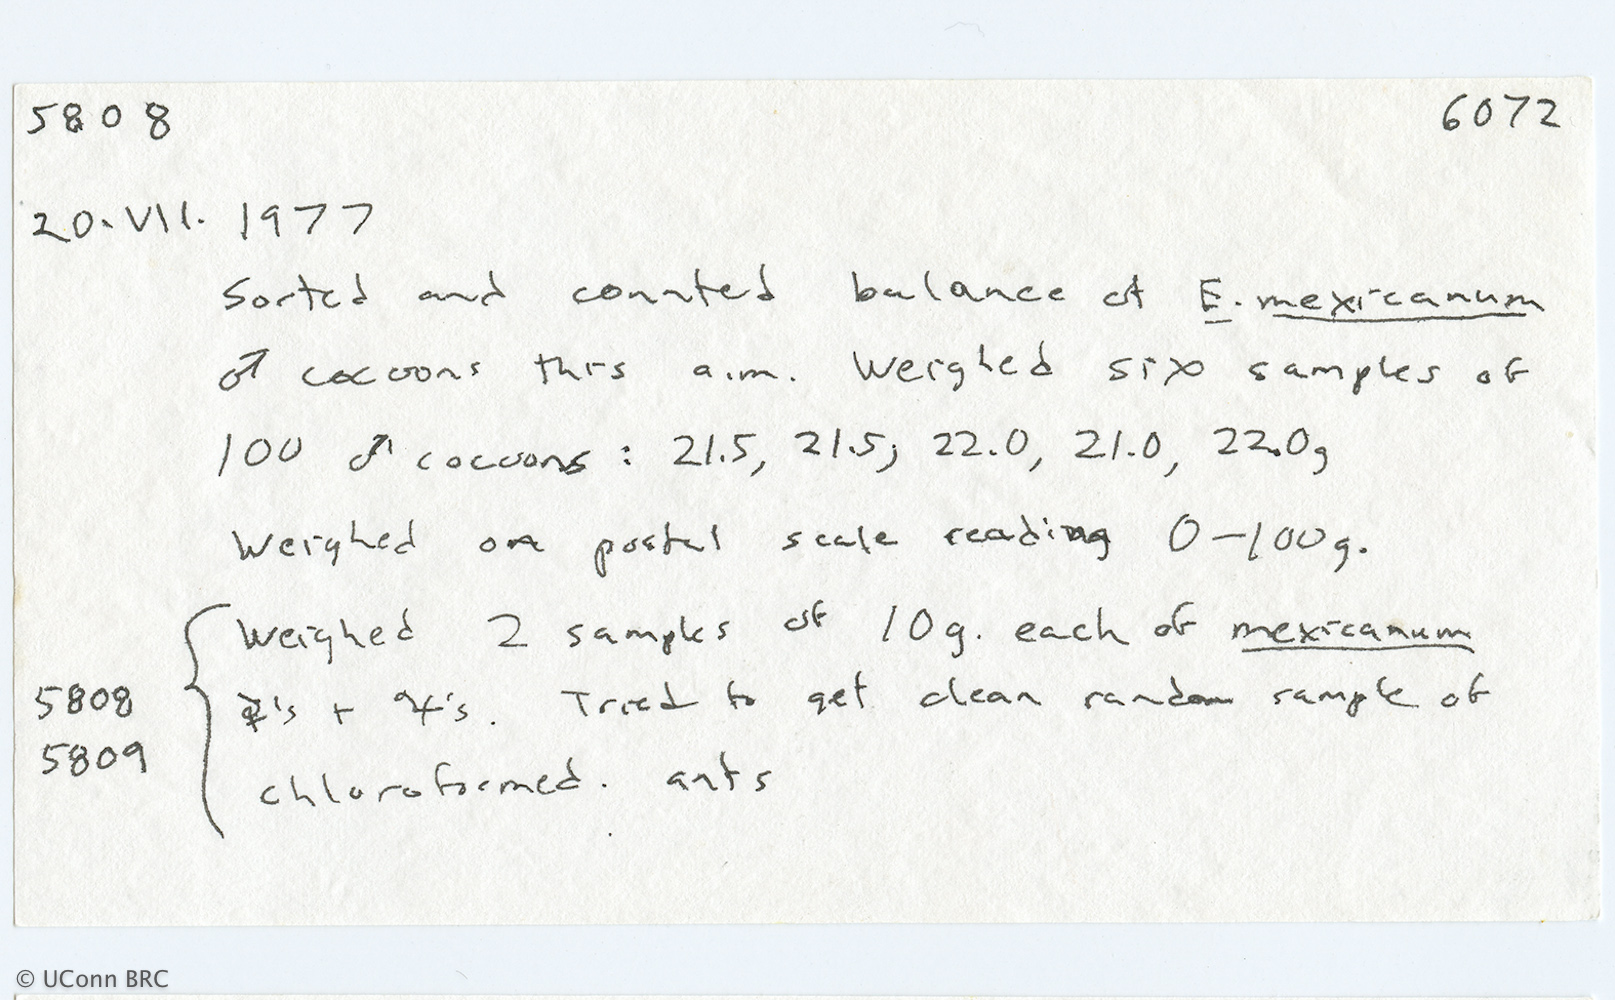 5808 6072
20.VII. 1977
Sorted and counted balance of E. mexicanum
♂ cocoons this a.m. Weighed six samples of
100 ♂ cocoons : 21.5, 21.5, 22.0, 21.0, 22.0g
Weighed on postal scale reading 0-100g.
Weighed 2 samples of 10g. each of mexicanum
5808 's + 's. Tried to get clean random sample of
5809 chloroformed. ants
© UConn BRC